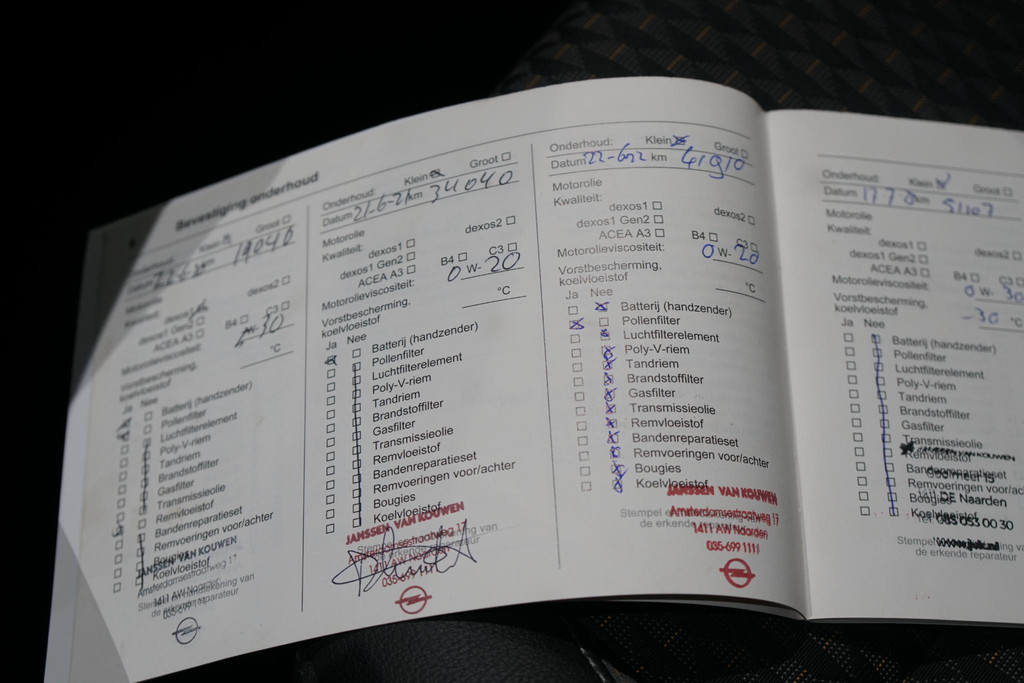 Bevestiging onderhoud
Onderhoud: Klein Groot
Datum km 19040
Motorolie
Kwaliteit: dexos1
dexos2
dexos1 Gen2
ACEA A3 B4 C3
Motorolieviscositeit: W-30
Vorstbescherming,
koelvloeistof °C
Ja Nee
Batterij (handzender)
Pollenfilter
Luchtfilterelement
Poly-V-riem
Tandriem
Brandstoffilter
Gasfilter
Transmissieolie
Remvloeistof
Bandenreparatieset
Remvoeringen voor/achter
Bougies
Koelvloeistof
JANSSEN VAN KOUWEN
Amsterdamsestraatweg 17
1411 AW Naarden
Stempel en handtekening van
de erkende reparateur
Onderhoud: Klein Groot
Datum 21-6-21 km 34040
Motorolie
Kwaliteit: dexos1
dexos2
dexos1 Gen2
ACEA A3 B4 C3
Motorolieviscositeit: 0 W- 20
Vorstbescherming,
koelvloeistof °C
Ja Nee
Batterij (handzender)
Pollenfilter
Luchtfilterelement
Poly-V-riem
Tandriem
Brandstoffilter
Gasfilter
Transmissieolie
Remvloeistof
Bandenreparatieset
Remvoeringen voor/achter
Bougies
Koelvloeistof
JANSSEN VAN KOUWEN
Amsterdamsestraatweg 17
1411 AW Naarden
035-699 1111
Onderhoud: Klein Groot
Datum 22-6-22 km 41910
Motorolie
Kwaliteit:
dexos1 dexos2
dexos1 Gen2
ACEA A3 B4 C3
Motorolieviscositeit: 0 W- 20
Vorstbescherming,
koelvloeistof °C
Ja Nee
Batterij (handzender)
Pollenfilter
Luchtfilterelement
Poly-V-riem
Tandriem
Brandstoffilter
Gasfilter
Transmissieolie
Remvloeistof
Bandenreparatieset
Remvoeringen voor/achter
Bougies
Koelvloeistof
JANSSEN VAN KOUWEN
Amsterdamsestraatweg 17
1411 AW Naarden
035-699 1111
Stempel
de erkende reparateur
Onderhoud: Klein Groot
Datum km 51107
Motorolie
Kwaliteit:
dexos1 dexos2
dexos1 Gen2
ACEA A3 B4 C3
Motorolieviscositeit: 0 W- 30
Vorstbescherming,
koelvloeistof -30 °C
Ja Nee
Batterij (handzender)
Pollenfilter
Luchtfilterelement
Poly-V-riem
Tandriem
Brandstoffilter
Gasfilter
Transmissieolie
Remvloeistof
Bandenreparatieset
Remvoeringen voor/ac
Bougies
Koelvloeistof
JANSSEN VAN KOUWEN
DE Naarden
Tel 085 053 00 30
Stempel en handtekening van
de erkende reparateur